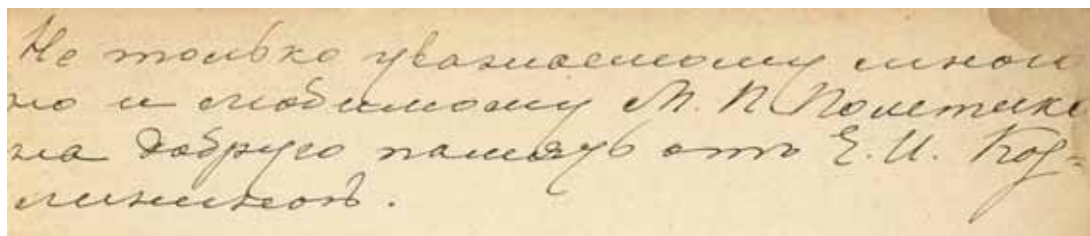 Не только уважаемому мною
но и любимому М. П. Полетике
на добрую память отъ Е. И.